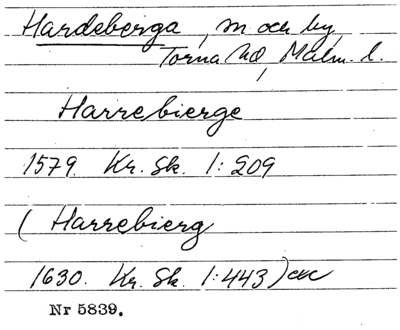 Hardeberga, sn och by,
Torna hd, Malm. l.
Harrebierge
1579. Kr. Sk. 1:209
(Harrebierg
1630. Kr. Sk. 1:443)
Nr 5839.